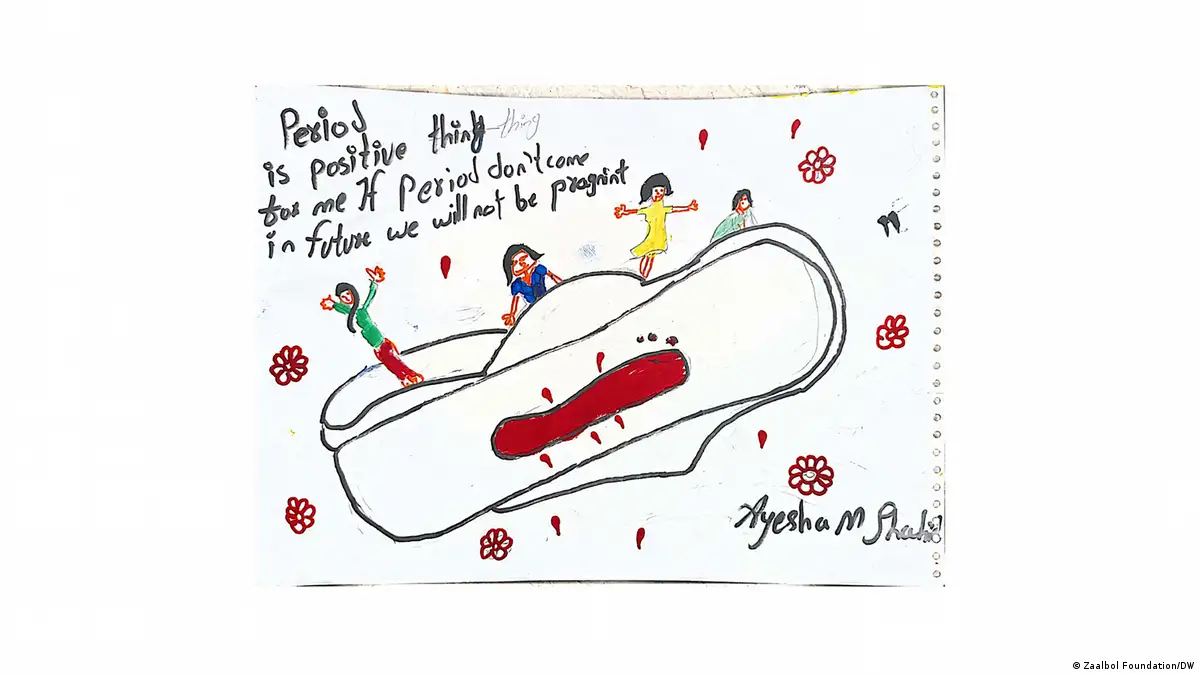 Period
is positive think thing
for me If Period don't come
in future we will not be pragnint
Ayesha M
© Zaalbol Foundation/DW